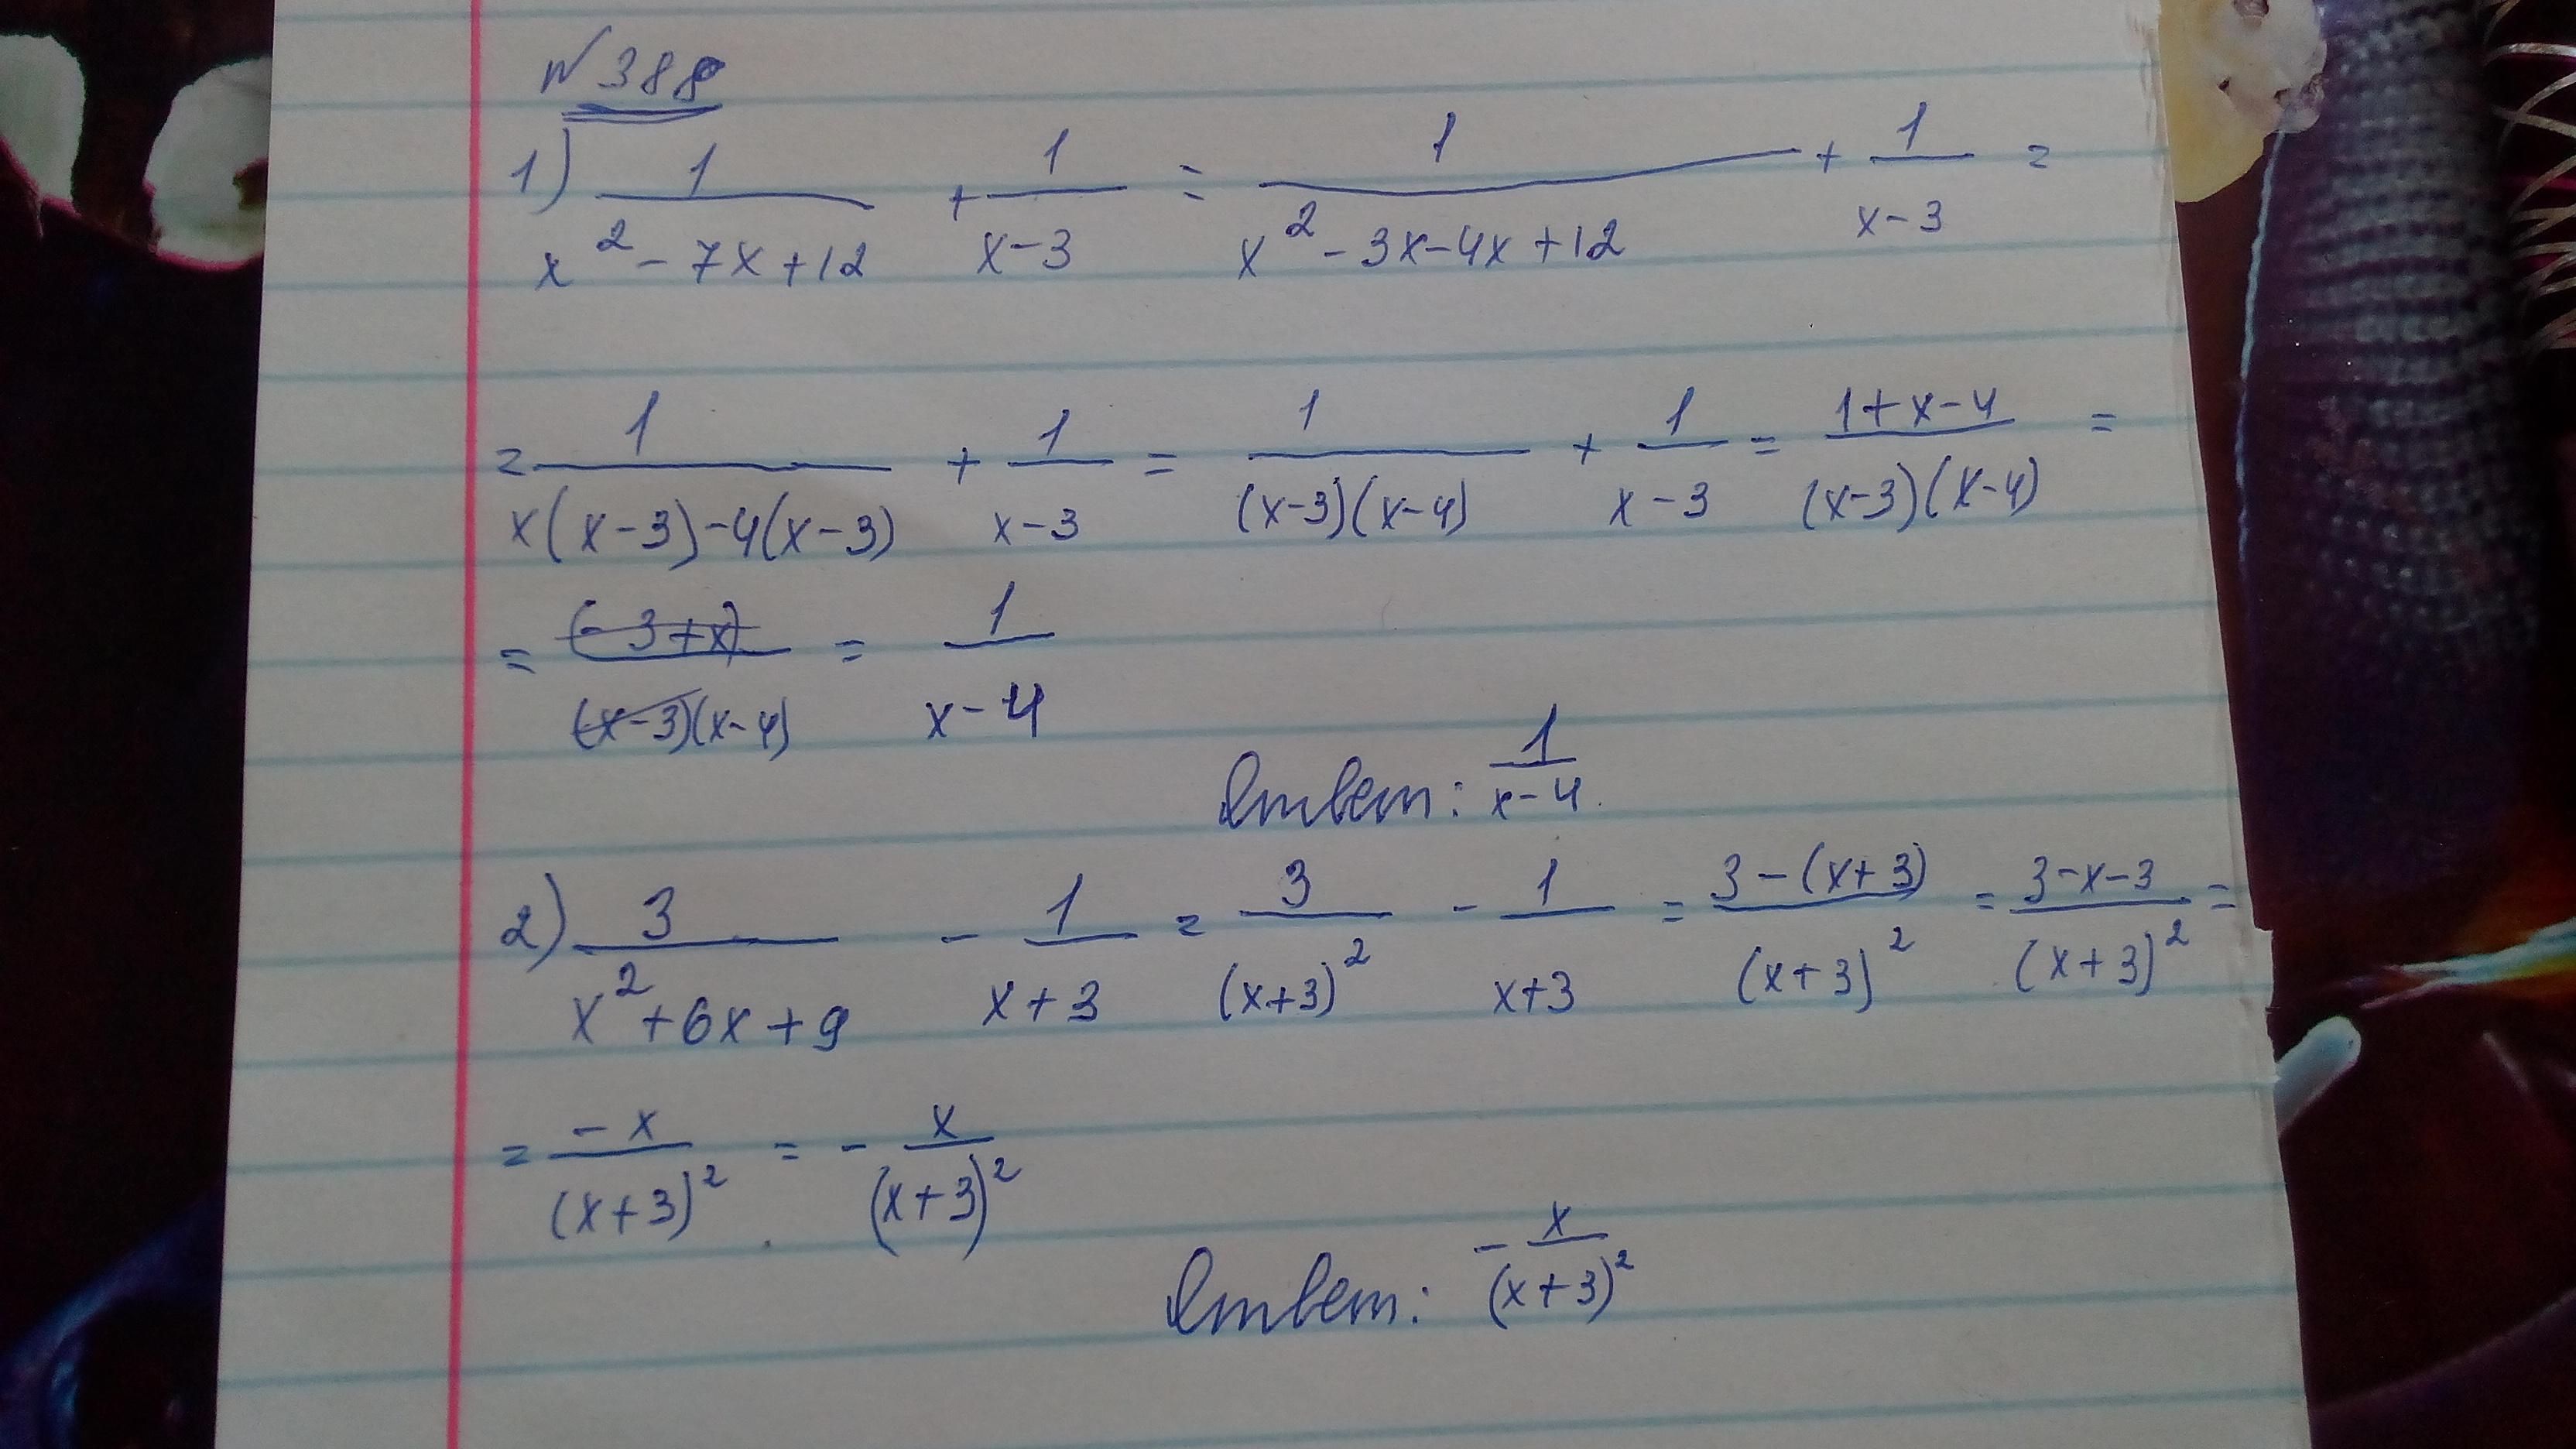 №388
1) 1/(x²-7x+12) + 1/(x-3) = 1/(x²-3x-4x+12) + 1/(x-3) =
= 1/(x(x-3)-4(x-3)) + 1/(x-3) = 1/((x-3)(x-4)) + 1/(x-3) = (1+x-4)/((x-3)(x-4)) =
= (-3+x)/((x-3)(x-4)) = 1/(x-4)
Ответ: 1/(x-4).
2) 3/(x²+6x+9) - 1/(x+3) = 3/(x+3)² - 1/(x+3) = (3-(x+3))/(x+3)² = (3-x-3)/(x+3)² =
= -x/(x+3)² = - x/(x+3)²
Ответ: - x/(x+3)²